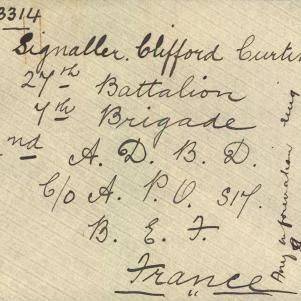 3314
Signaller. Clifford Curtis
27th Battalion
7th Brigade
nd A. D. B. D.
C/o A. P. O. S17.
B. E. F.
France